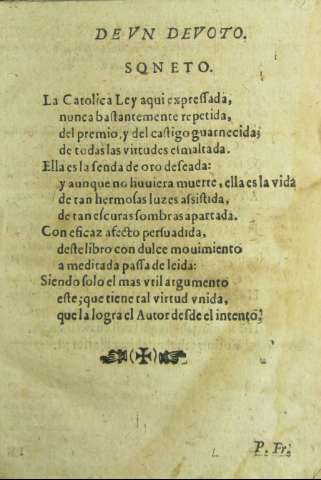 DE VN DEVOTO.
SONETO.
La Catolica Ley aqui expreſſada,
nunca baſtantemente repetida,
del premio, y del caſtigo guarnecida;
de todas las virtudes eſmaltada.
Ella es la ſenda de oro deſeada:
y aunque no huviera muerte, ella es la vida
de tan hermoſas luzes aſsiſtida,
de tan eſcuras ſombras apartada.
Con eficaz afecto perſuadida,
deſte libro con dulce mouimiento
a meditada paſſa de leida:
Siendo ſolo el mas vtil argumento
eſte; que tiene tal virtud vnida,
que la logra el Autor desde el intento.
P. Fr.